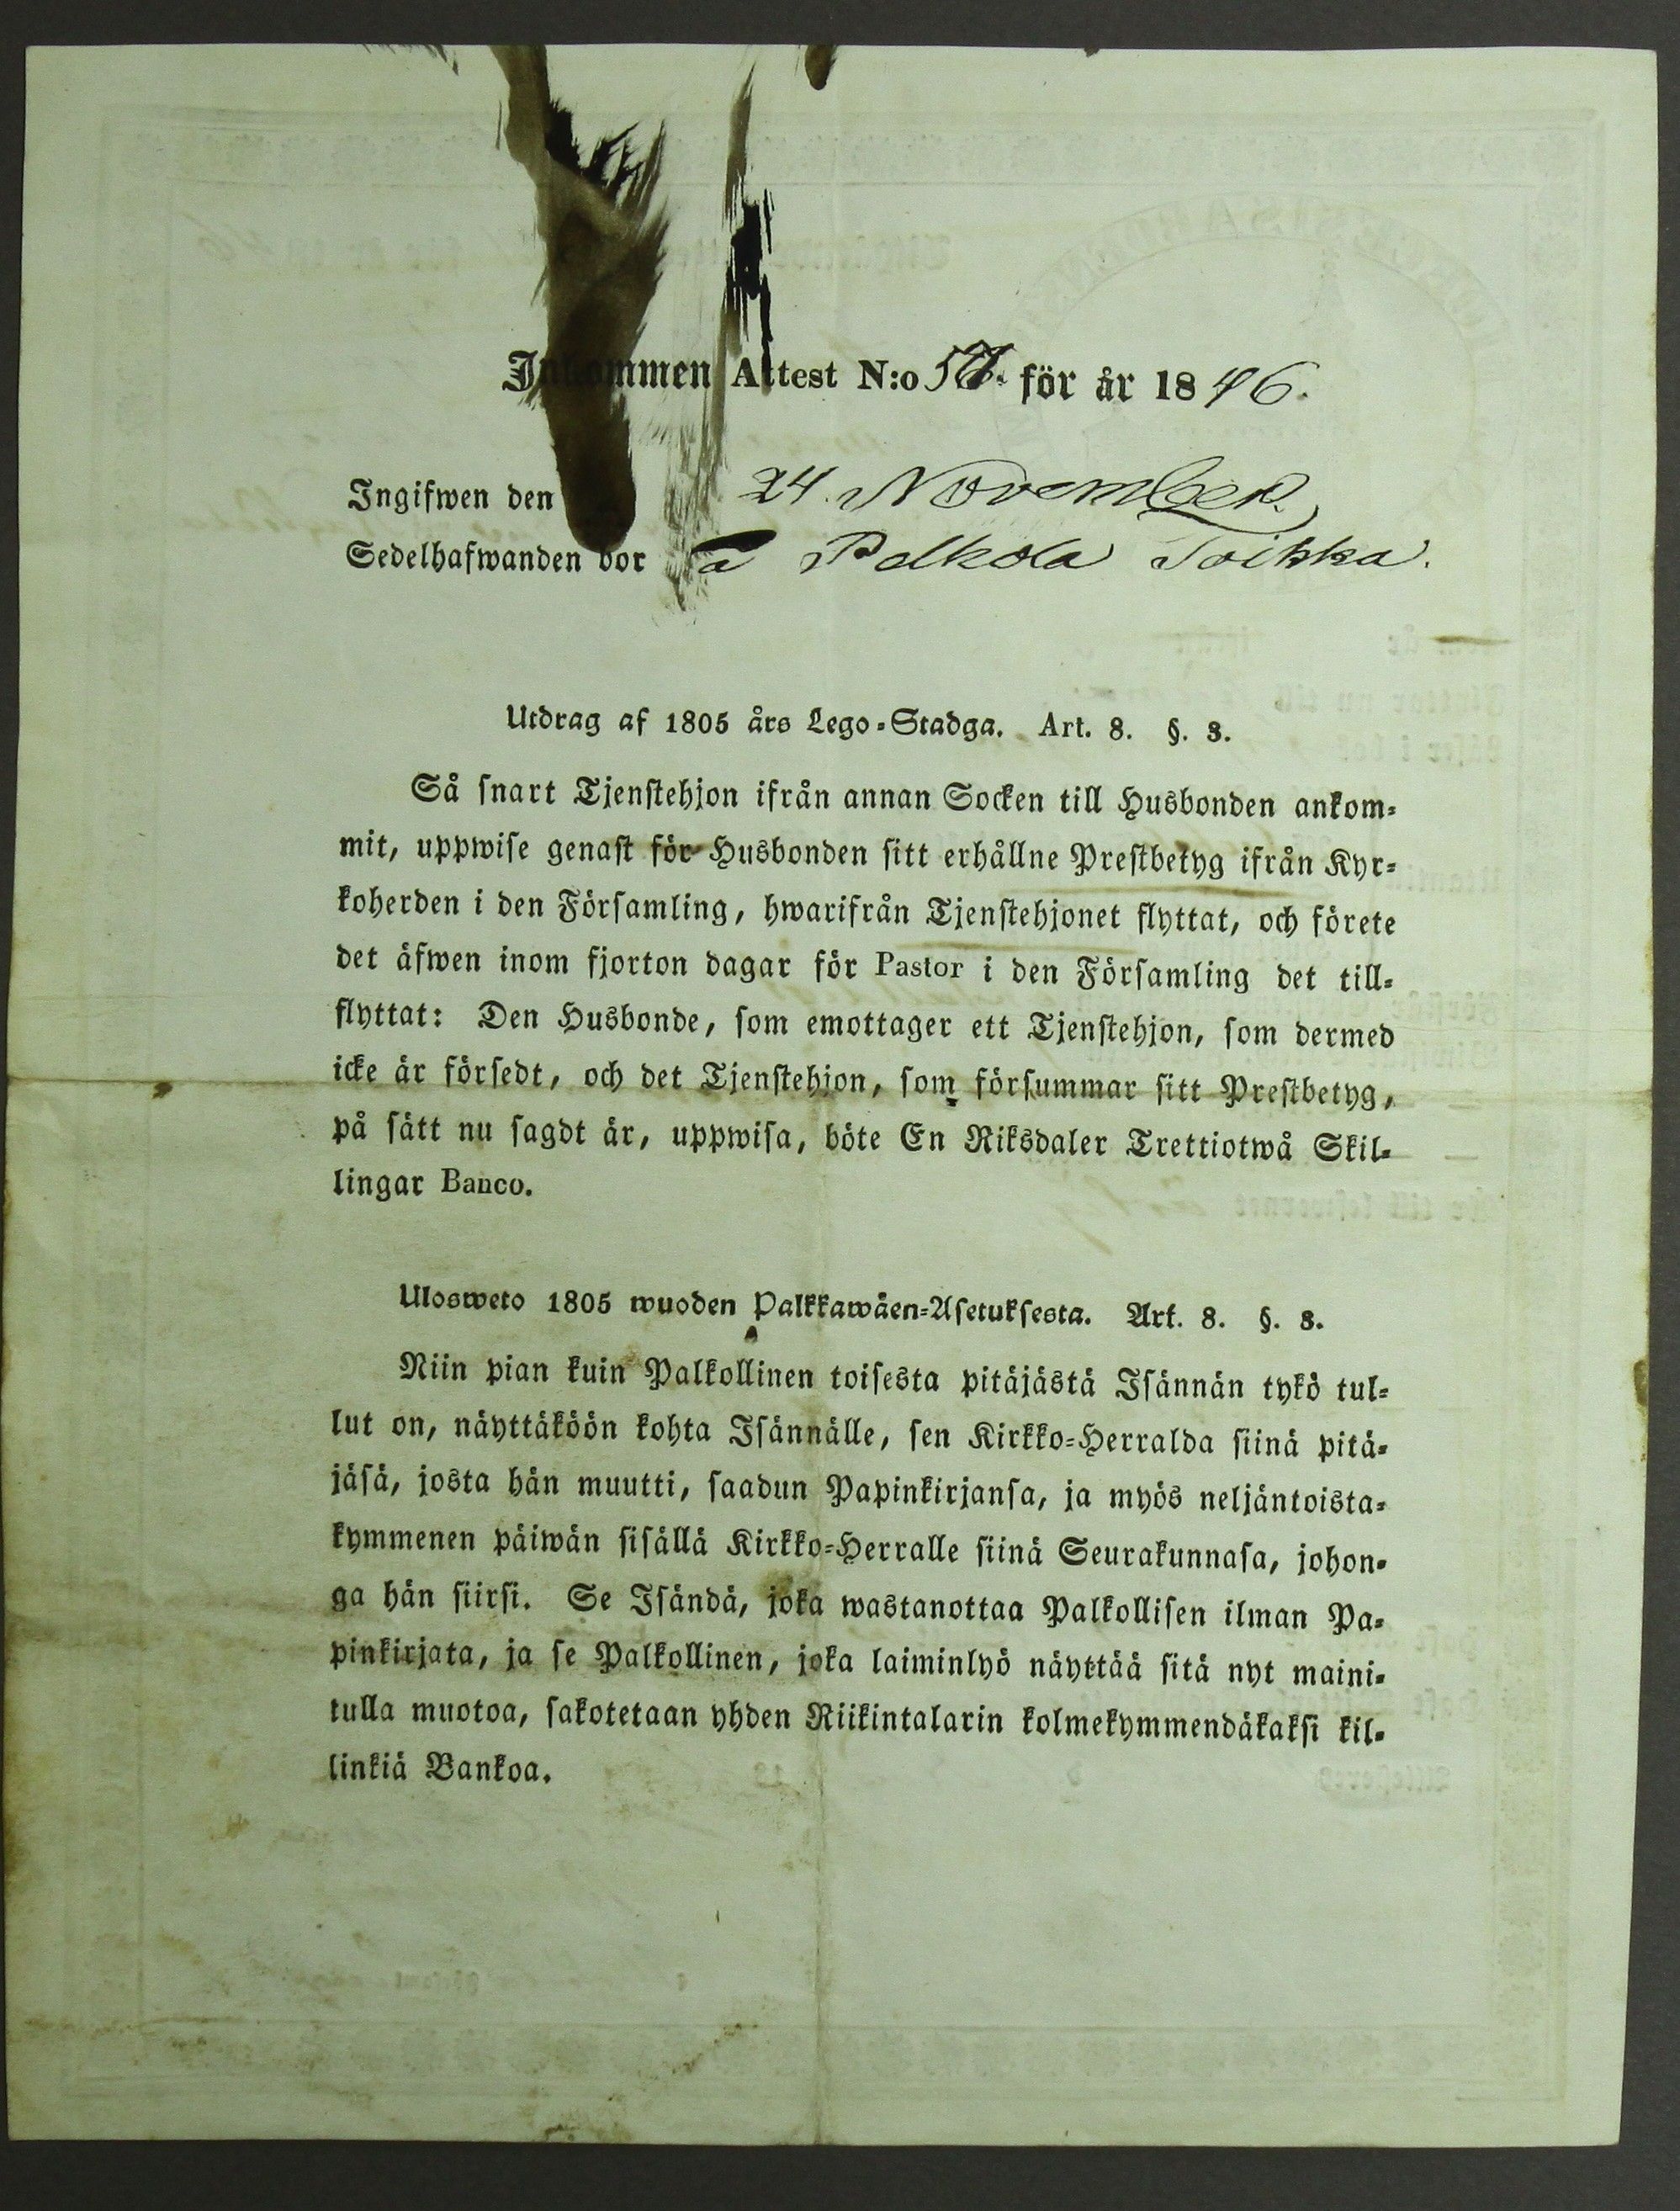 Inkommen Attest N:o för år 1846.
Ingifwen den 24. November.
Sedelhafwanden bor å Pelkola Toikka.
Utdrag af 1805 års Lego-Stadga. Art. 8. §. 3.
Så snart Tjenstehjon ifrån annan Socken till Husbonden ankom-
mit, uppwise genast för Husbonden sitt erhållne Prestbetyg ifrån Kyr-
koherden i den Församling, hwarifrån Tjenstehjonet flyttat, och förete
det äfwen inom fjorton dagar för Pastor i den Församling det till-
flyttat: Den Husbonde, som emottager ett Tjenstehjon, som dermed
icke är försedt, och det Tjenstehjon, som försummar sitt Prestbetyg,
på sätt nu sagdt är, uppwisa, böte En Riksdaler Trettiotwå Skil-
lingar Banco.
Ulosweto 1805 wuoden Palkkawäen-Asetuksesta. Art. 8. §. 3.
Niin pian kuin Palkollinen toisesta pitäjästä Isännän tykö tul-
lut on, näyttäköön kohta Isännälle, sen Kirkko-Herralda siinä pitä-
jäsä, josta hän muutti, saadun Papinkirjansa, ja myös neljäntoista-
kymmenen päiwän sisällä Kirkko-Herralle siinä Seurakunnasa, johon-
ga hän siirsi. Se Isändä, joka wastanottaa Palkollisen ilman Pa-
pinkirjata, ja se Palkollinen, joka laiminlyö näyttää sitä nyt maini-
tulla muotoa, sakotetaan yhden Riikintalarin kolmekymmendäkaksi kil-
linkiä Bankoa.